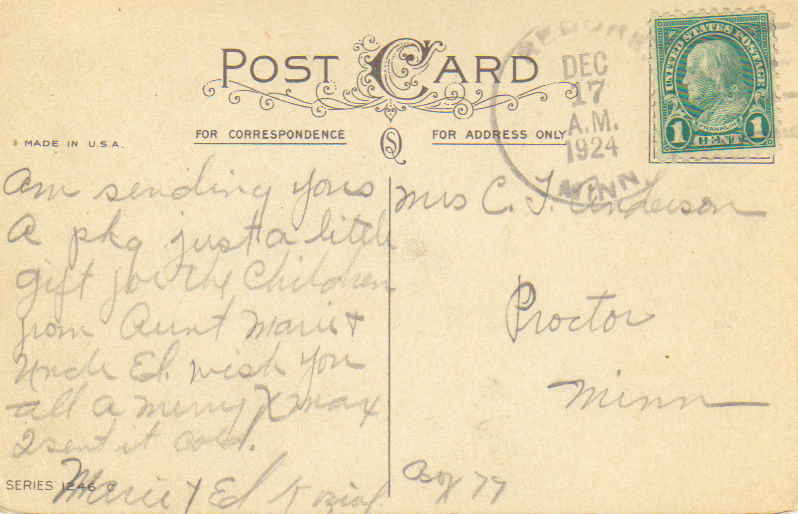 POST CARD
FOR CORRESPONDENCE
FOR ADDRESS ONLY
MADE IN U.S.A.
DEC
17
A.M.
1924
MINN
UNITED STATES POSTAGE
FRANKLIN
1 CENT 1
Am sending yous
A pkg just a little
gift for the Children
from Aunt Marie &
Uncle Ed. wish you
all a merry Xmas
I sent it
Marie & Ed
Mrs C. J. Anderson
Proctor
Minn
Box 77
SERIES 1246 C